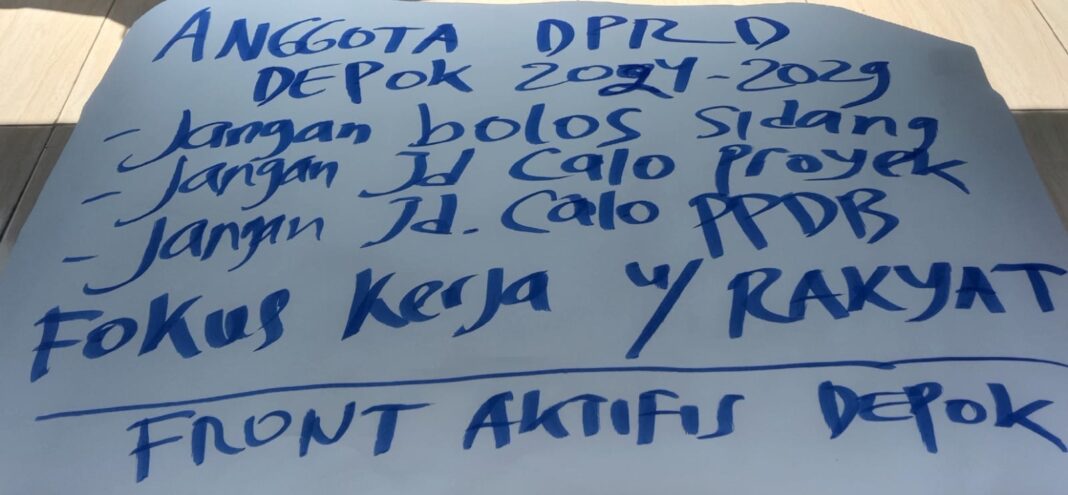 ANGGOTA DPRD
DEPOK 2024-2029
- Jangan bolos sidang
- Jangan Jd Calo proyek
- Jangan Jd. Calo PPDB
Fokus Kerja u/ RAKYAT
FRONT AKTIFIS DEPOK